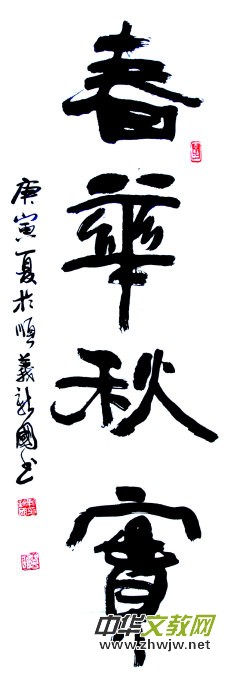 春華秋實
庚寅夏於順義新國書
中华文教网
www.zhwjw.net